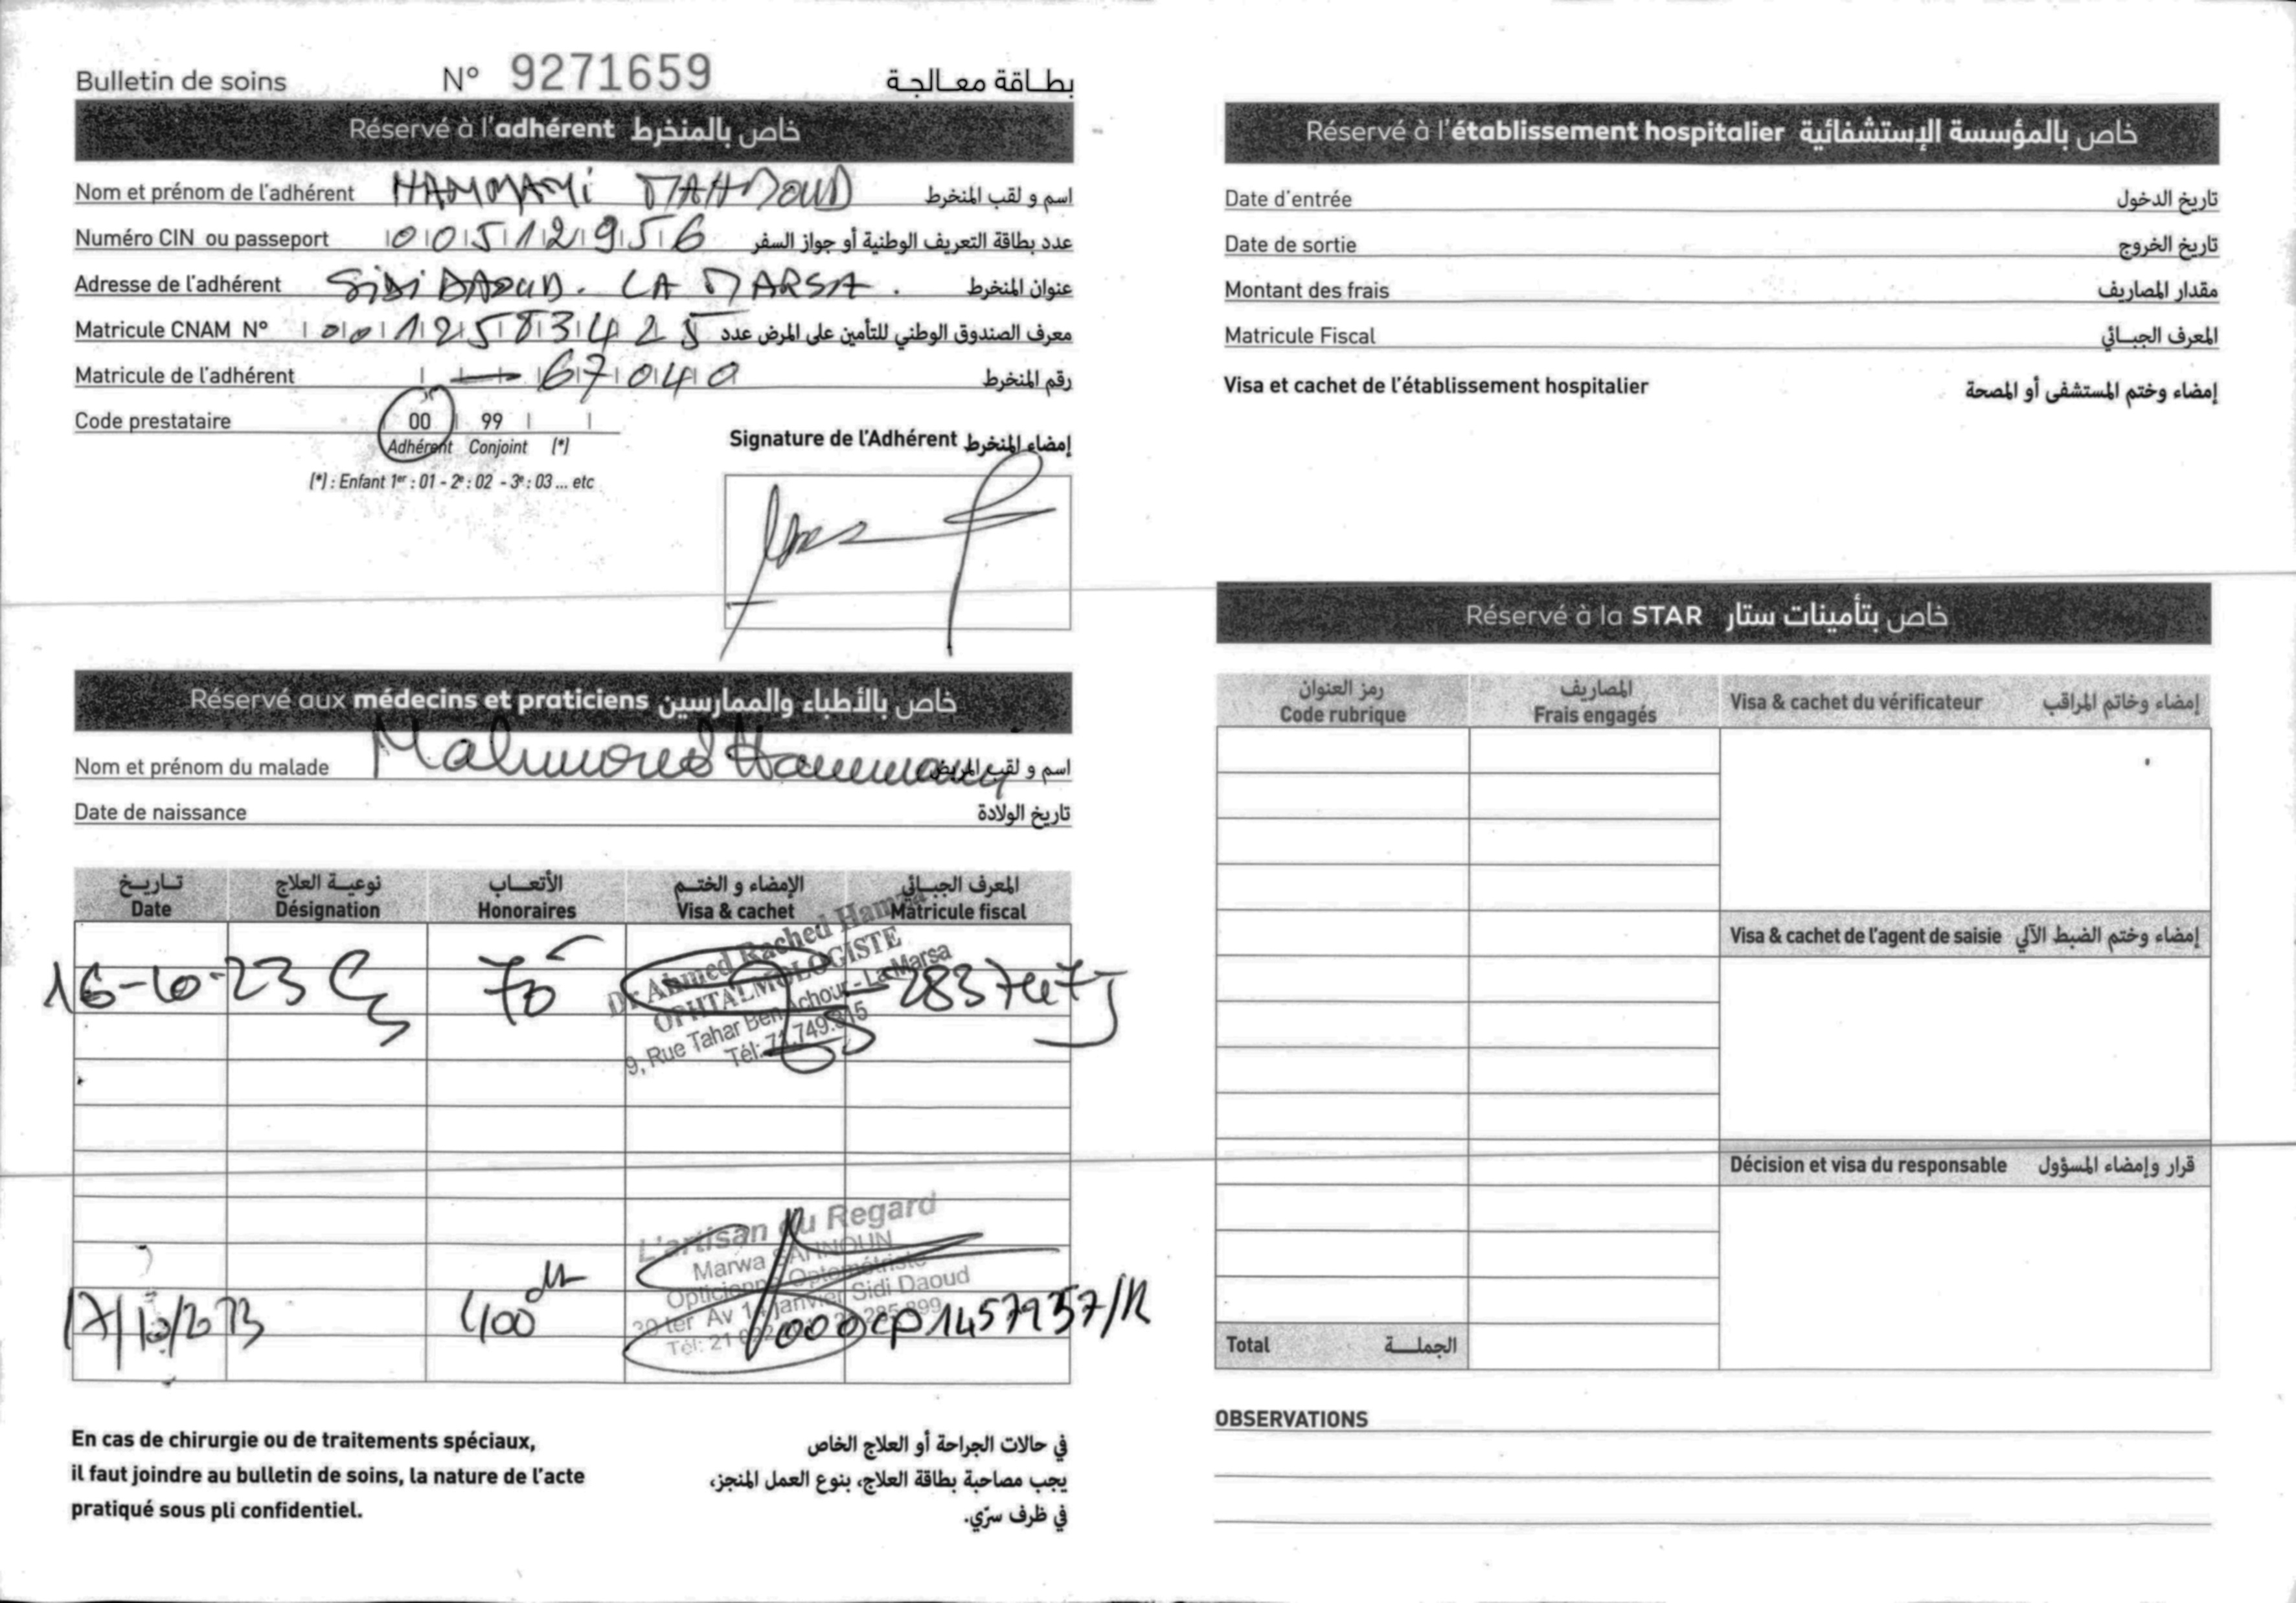 Bulletin de soins N° 9271659 بطاقة معالجة
Réservé à l'adhérent خاص بالمنخرط
Nom et prénom de l'adhérent HAMMAMI MAHMOUD اسم و لقب المنخرط
Numéro CIN ou passeport 00512956 عدد بطاقة التعريف الوطنية أو جواز السفر
Adresse de l'adhérent SIDI DAOUD. LA MARSA. عنوان المنخرط
Matricule CNAM N° معرف الصندوق الوطني للتأمين على المرض عدد
Matricule de l'adhérent 67040 رقم المنخرط
Code prestataire 00 99
Adhérent Conjoint (*)
(*) : Enfant 1er : 01 - 2e : 02 - 3e : 03 ... etc
Signature de l'Adhérent إمضاء المنخرط
Réservé aux médecins et praticiens خاص بالأطباء والممارسين
Nom et prénom du malade Mahmoud Hammami اسم و لقب المريض
Date de naissance تاريخ الولادة
تاريخ نوعية العلاج الأتعاب الإمضاء و الختم المعرف الجبائي
Date Désignation Honoraires Visa & cachet Matricule fiscal
16-10-23 70
Dr Ahmed Rached Hamza
OPHTALMOLOGISTE
9, Rue Tahar Ben Achour - La Marsa
Tél: 71.749.315
L'artisan du Regard
Marwa SAHNOUN
Opticienne Optométriste
30 ter Av 14 janvier Sidi Daoud
Tél: 21
400 dt
000 1457937/R
En cas de chirurgie ou de traitements spéciaux,
il faut joindre au bulletin de soins, la nature de l'acte
pratiqué sous pli confidentiel.
في حالات الجراحة أو العلاج الخاص
يجب مصاحبة بطاقة العلاج، بنوع العمل المنجز،
في ظرف سرّي.
Réservé à l'établissement hospitalier خاص بالمؤسسة الإستشفائية
Date d'entrée تاريخ الدخول
Date de sortie تاريخ الخروج
Montant des frais مقدار المصاريف
Matricule Fiscal المعرف الجبائي
Visa et cachet de l'établissement hospitalier إمضاء وختم المستشفى أو المصحة
Réservé à la STAR خاص بتأمينات ستار
رمز العنوان المصاريف
Code rubrique Frais engagés Visa & cachet du vérificateur إمضاء وخاتم المراقب
Visa & cachet de l'agent de saisie إمضاء وختم الضبط الآلي
Décision et visa du responsable قرار وإمضاء المسؤول
Total الجملة
OBSERVATIONS